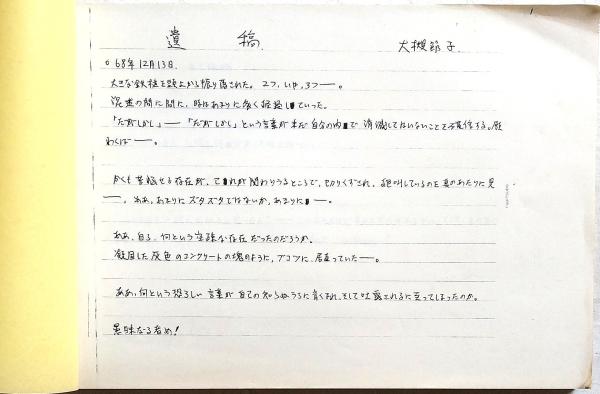 遺稿
大槻節子
○68年12月13日.
大きな鉄槌を頭上から振り落された。2つ、いや、3つ──。
混迷の間に間に、時はあまりに多く経過していった。
「だがしかし」──「だがしかし」という言葉が未だ自分の内で消滅してはいないことを確信する。願
わくば──。
かくも苦悩せる存在が、己れが関わりうるところで、切りくずされ、絶叫しているのを真のあたりに見
──。ああ、あまりにズタズタではないか、あまりに──。
ああ、自己、何という空疎な存在だったのだろうか。
凝固した灰色のコンクリートの塊のように、ブコツに、居直っていた──。
ああ、何という恐ろしい言葉が自己の知らぬうちに育くまれ、そして吐露されるに至ってしまったのか。
曖昧なる者め!